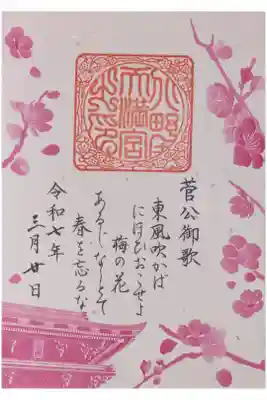 北野
天満宮
之印
菅公御歌
東風吹かば
にほひおこせよ
梅の花
あるじなしとて
春を忘るな
令和七年
三月廿日